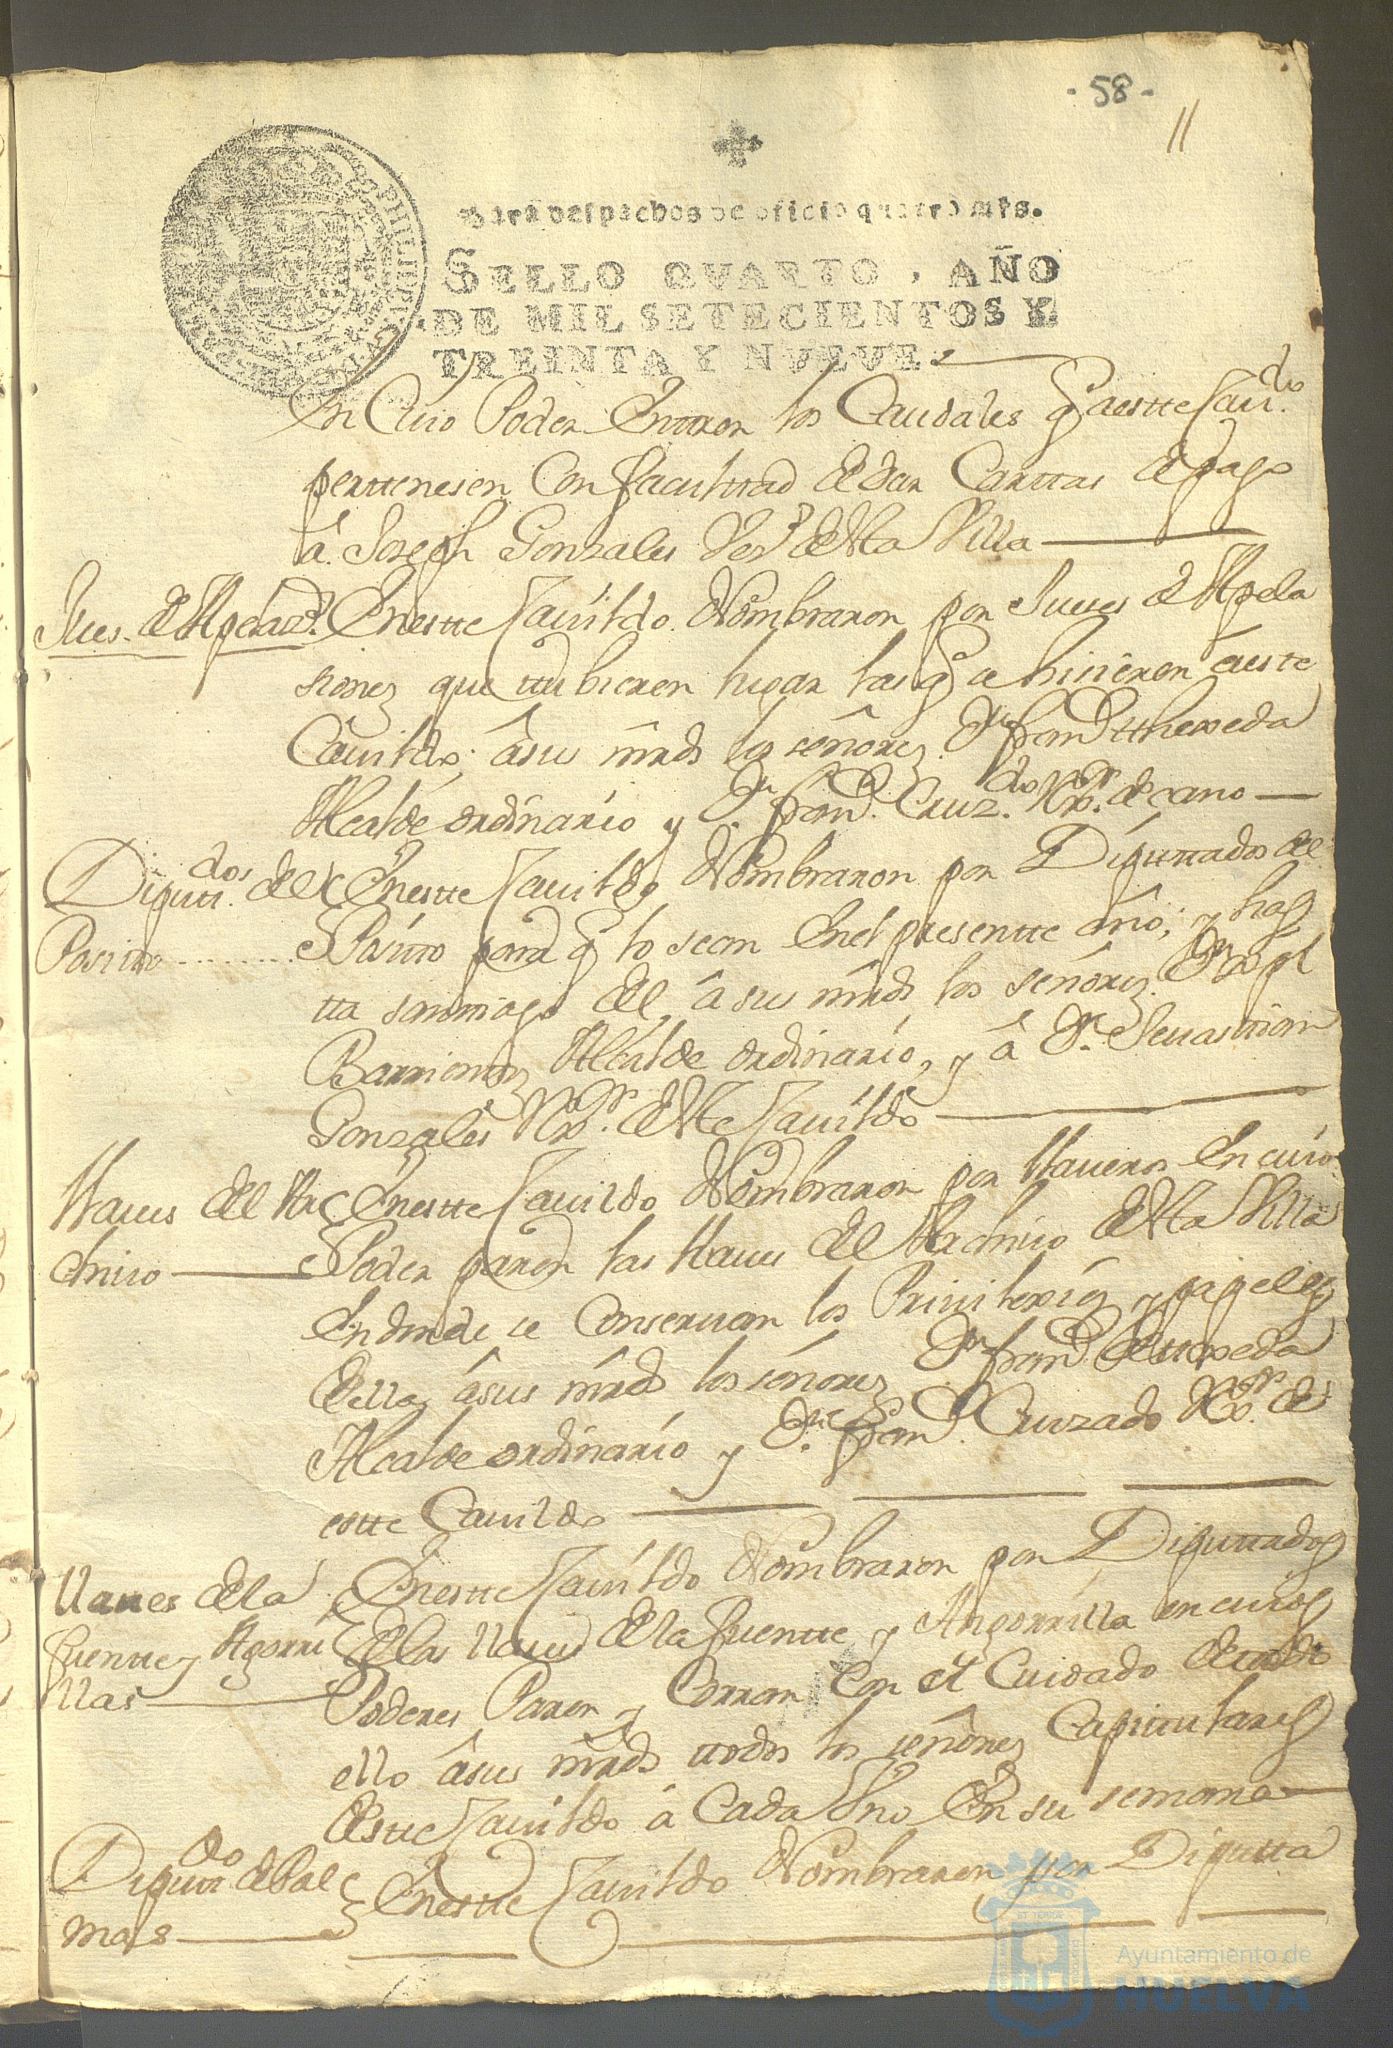 - 58 -
11
Para despachos de oficio quatro mrs.
SELLO QVARTO, AÑO
DE MIL SETECIENTOS Y
TREINTA Y NVEVE.
En Cuio Poder Entren los Caudales q aestte Cau.do
perttenesen Con facultad de dar Carttas de pago
â Joseph Gonzales Vez.º desta Villa
Jues. de Apelaz.s
En estte Cauildo Nombraron por Jueses de Apela
siones que ttubieren lugar las q se hisieren â este
Cauildo; âsus mrds los señores Dn fran.co tthexeda
Alcalde ordinario y Dn fran.co Cruz.do Rxr. decano
Diputt.dos del
Posito
En estte Cauildo Nombraron por Diputtados del
Posito para q lo sean En el presentte año; y has
tta santiago del, â sus mrds los señores Dn
Barrientos Alcalde ordinario, y â Dn Seuasttian
Gonzales Rxr. deste Cauildo
Llaues del Ar
chiuo
En estte Cauildo Nombraron por llaueros En cuio
Poder paren las llaues del Archiuo desta Villa
En donde se Conseruan los Priuilexios y papeles
della âsus mrds los señores Dn fran.co de tthexeda
Alcalde ordinario y Dn fran.co Cruzado Rxr. de
estte Cauildo
llaues de la
fuentte y Agorri
llas
En estte Cauildo Nombraron por Diputtados
de las llaues de la fuentte y Angorrilla en cuios
Poderes Paren y Corran Con el Cuidado de todo
ello âsus mrds ttodos los señores Capitulares
deste Cauildo â Cada Vno En su semana
Diputt.do de Pal
mas
En estte Cauildo Nombraron por Diputta
Ayuntamiento de
HUELVA